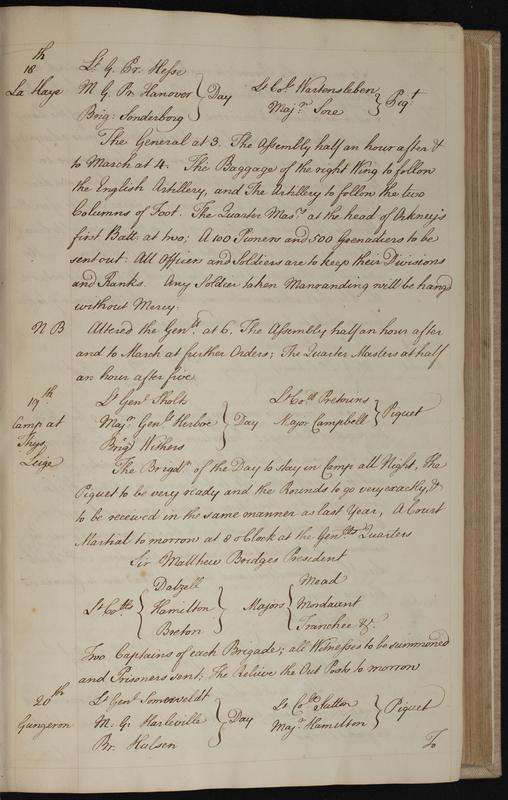 18th
La Haye
Lt G. Pr. Hesse
M. G. Pr. Hanover } Day
Brig: Sonderborg
Lt Col: Wartensleben
Majr Sore } Piqt
The General at 3. The Assembly half an hour after &
to March at 4. The Baggage of the right Wing to follow
the English Artillery, and The Artillery to follow the two
Columns of Foot. The Quarter Masrs at the head of Orkney's
first Batt: at two; A 100 Pioneers and 500 Grenadiers to be
sent out: All Officers and Soldiers are to keep their Divisions
and Ranks. Any Soldier taken Marauding will be hang'd
without Mercy.
N B Altered the Genll at 6, The Assembly half an hour after
and to March at further Orders; The Quarter Masters at half
an hour after five
19th
Camp at
Thys,
Leige
Lt Genl Sholts
Majr Genll Herboe } Day
Brigr Withers
Lt Coll Pretorins
Major Campbell } Piquet
The Brigdr of the Day to stay in Camp all Night, The
Piquet to be very ready and the Rounds to go very exactly, &
to be received in the same manner as last Year, A Court
Martial to morrow at 8 o Clock at the Genlls Quarters
Sir Matthew Bridges President
Lt Colls { Dalzell
Hamilton
Breton }
Majors { Mead
Mordaunt
Tranchee &c.
Two Captains of each Brigade; all Witnesses to be summoned
and Prisoners sent; The Relieve the Out Posts to morrow
20th
Gungeron
Lt Genl Somerveldt
M. G. Harleville } Day
Br. Hulsen
Lt Coll Sutton
Majr Hamilton } Piquet
To